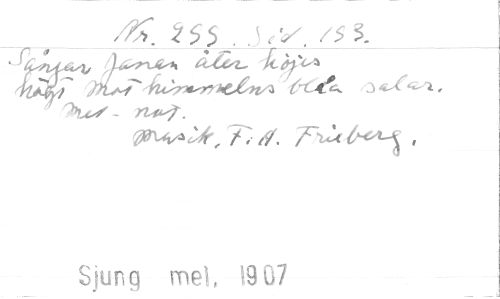 Nr. 255. Sid. 153.
Sångar fanan åter höjes
högt mot himmelns blåa salar.
Med not.
Musik, F. A. Frieberg.
Sjung mel, 1907